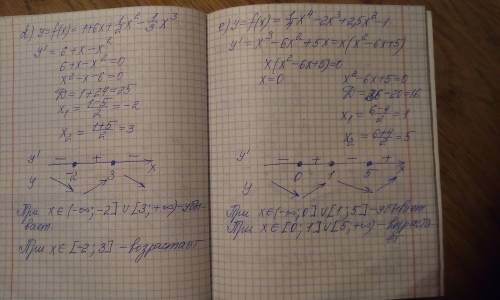 в) y=f(x)=1+6x+1/2x²-1/3x³
y'=6+x-x²
6+x-x²=0
x²-x-6=0
D=1+24=25
x₁=(1-5)/2=-2
x₂=(1+5)/2=3
y' - + - x
-2 3
y
При x∈(-∞;-2]∪[3;+∞)-убы-
вает.
При x∈[-2;3] -возрастает
с) y=f(x)=1/4x⁴-2x³+2,5x²-1
y'=x³-6x²+5x=x(x²-6x+5)
x(x²-6x+5)=0
x=0 x²-6x+5=0
D=36-20=16
x₁=(6-4)/2=1
x₂=(6+4)/2=5
y' - + - + x
0 1 5
y
При x∈(-∞;0]∪[1;5]-убывает.
При x∈[0;1]∪[5;+∞)-возраста-
ет